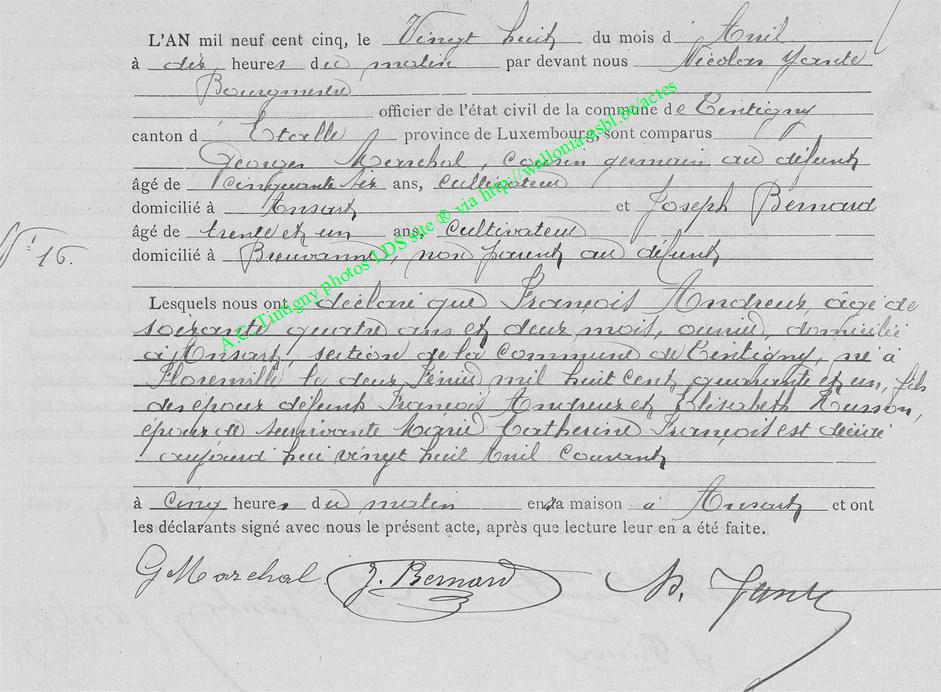 L'AN mil neuf cent cinq, le Vingt huit du mois d' Avril
à dix heures du matin par devant nous Nicolas Yante
Bourgmestre
officier de l'état civil de la commune de Tintigny
canton d' Etalle province de Luxembourg, sont comparus
Georges Marechal, cousin germain au défunt
âgé de cinquante six ans, cultivateur
domicilié à Ansart et Joseph Bernard
âgé de trente et un ans, cultivateur
domicilié à Breuvanne, non parent au défunt
N° 16.
Lesquels nous ont déclaré que François Andreux, âgé de
soixante quatre ans et deux mois, ouvrier, domicilié
à Ansart, section de la commune de Tintigny, né à
Florenville le deux mil huit cent quarante et un, fils
des époux défunts François Andreux et Elisabeth Husson,
époux de survivante Marie Catherine François est décédé
aujourd'hui vingt huit Avril courant
à cinq heures du matin en sa maison à Ansart et ont
les déclarants signé avec nous le présent acte, après que lecture leur en a été faite.
G Marechal J. Bernard N. Yante
A.C. Tintigny photos LDS site ® via http://wallonia.asbl.be/actes